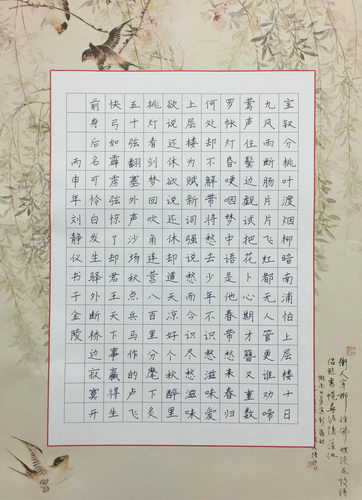 宝钗分桃叶渡烟柳暗南浦怕上层楼十日
九风雨断肠片片飞红都无人管更谁劝啼
莺声住鬓边觑试把花卜心期才簪又重数
罗帐灯昏哽咽梦中语是他春带愁来春归
何处却不解带将愁去少年不识愁滋味爱
上层楼为赋新词强说愁而今识尽愁滋味
欲说还休欲说还休却道天凉好个秋醉里
挑灯看剑梦回吹角连营八百里分麾下炙
五十弦翻塞外声沙场秋点兵马作的卢飞
快弓如霹雳弦惊了却君王天下事赢得生
前身后名可怜白发生驿外断桥边寂寞开
丙申年刘静仪书于金陵